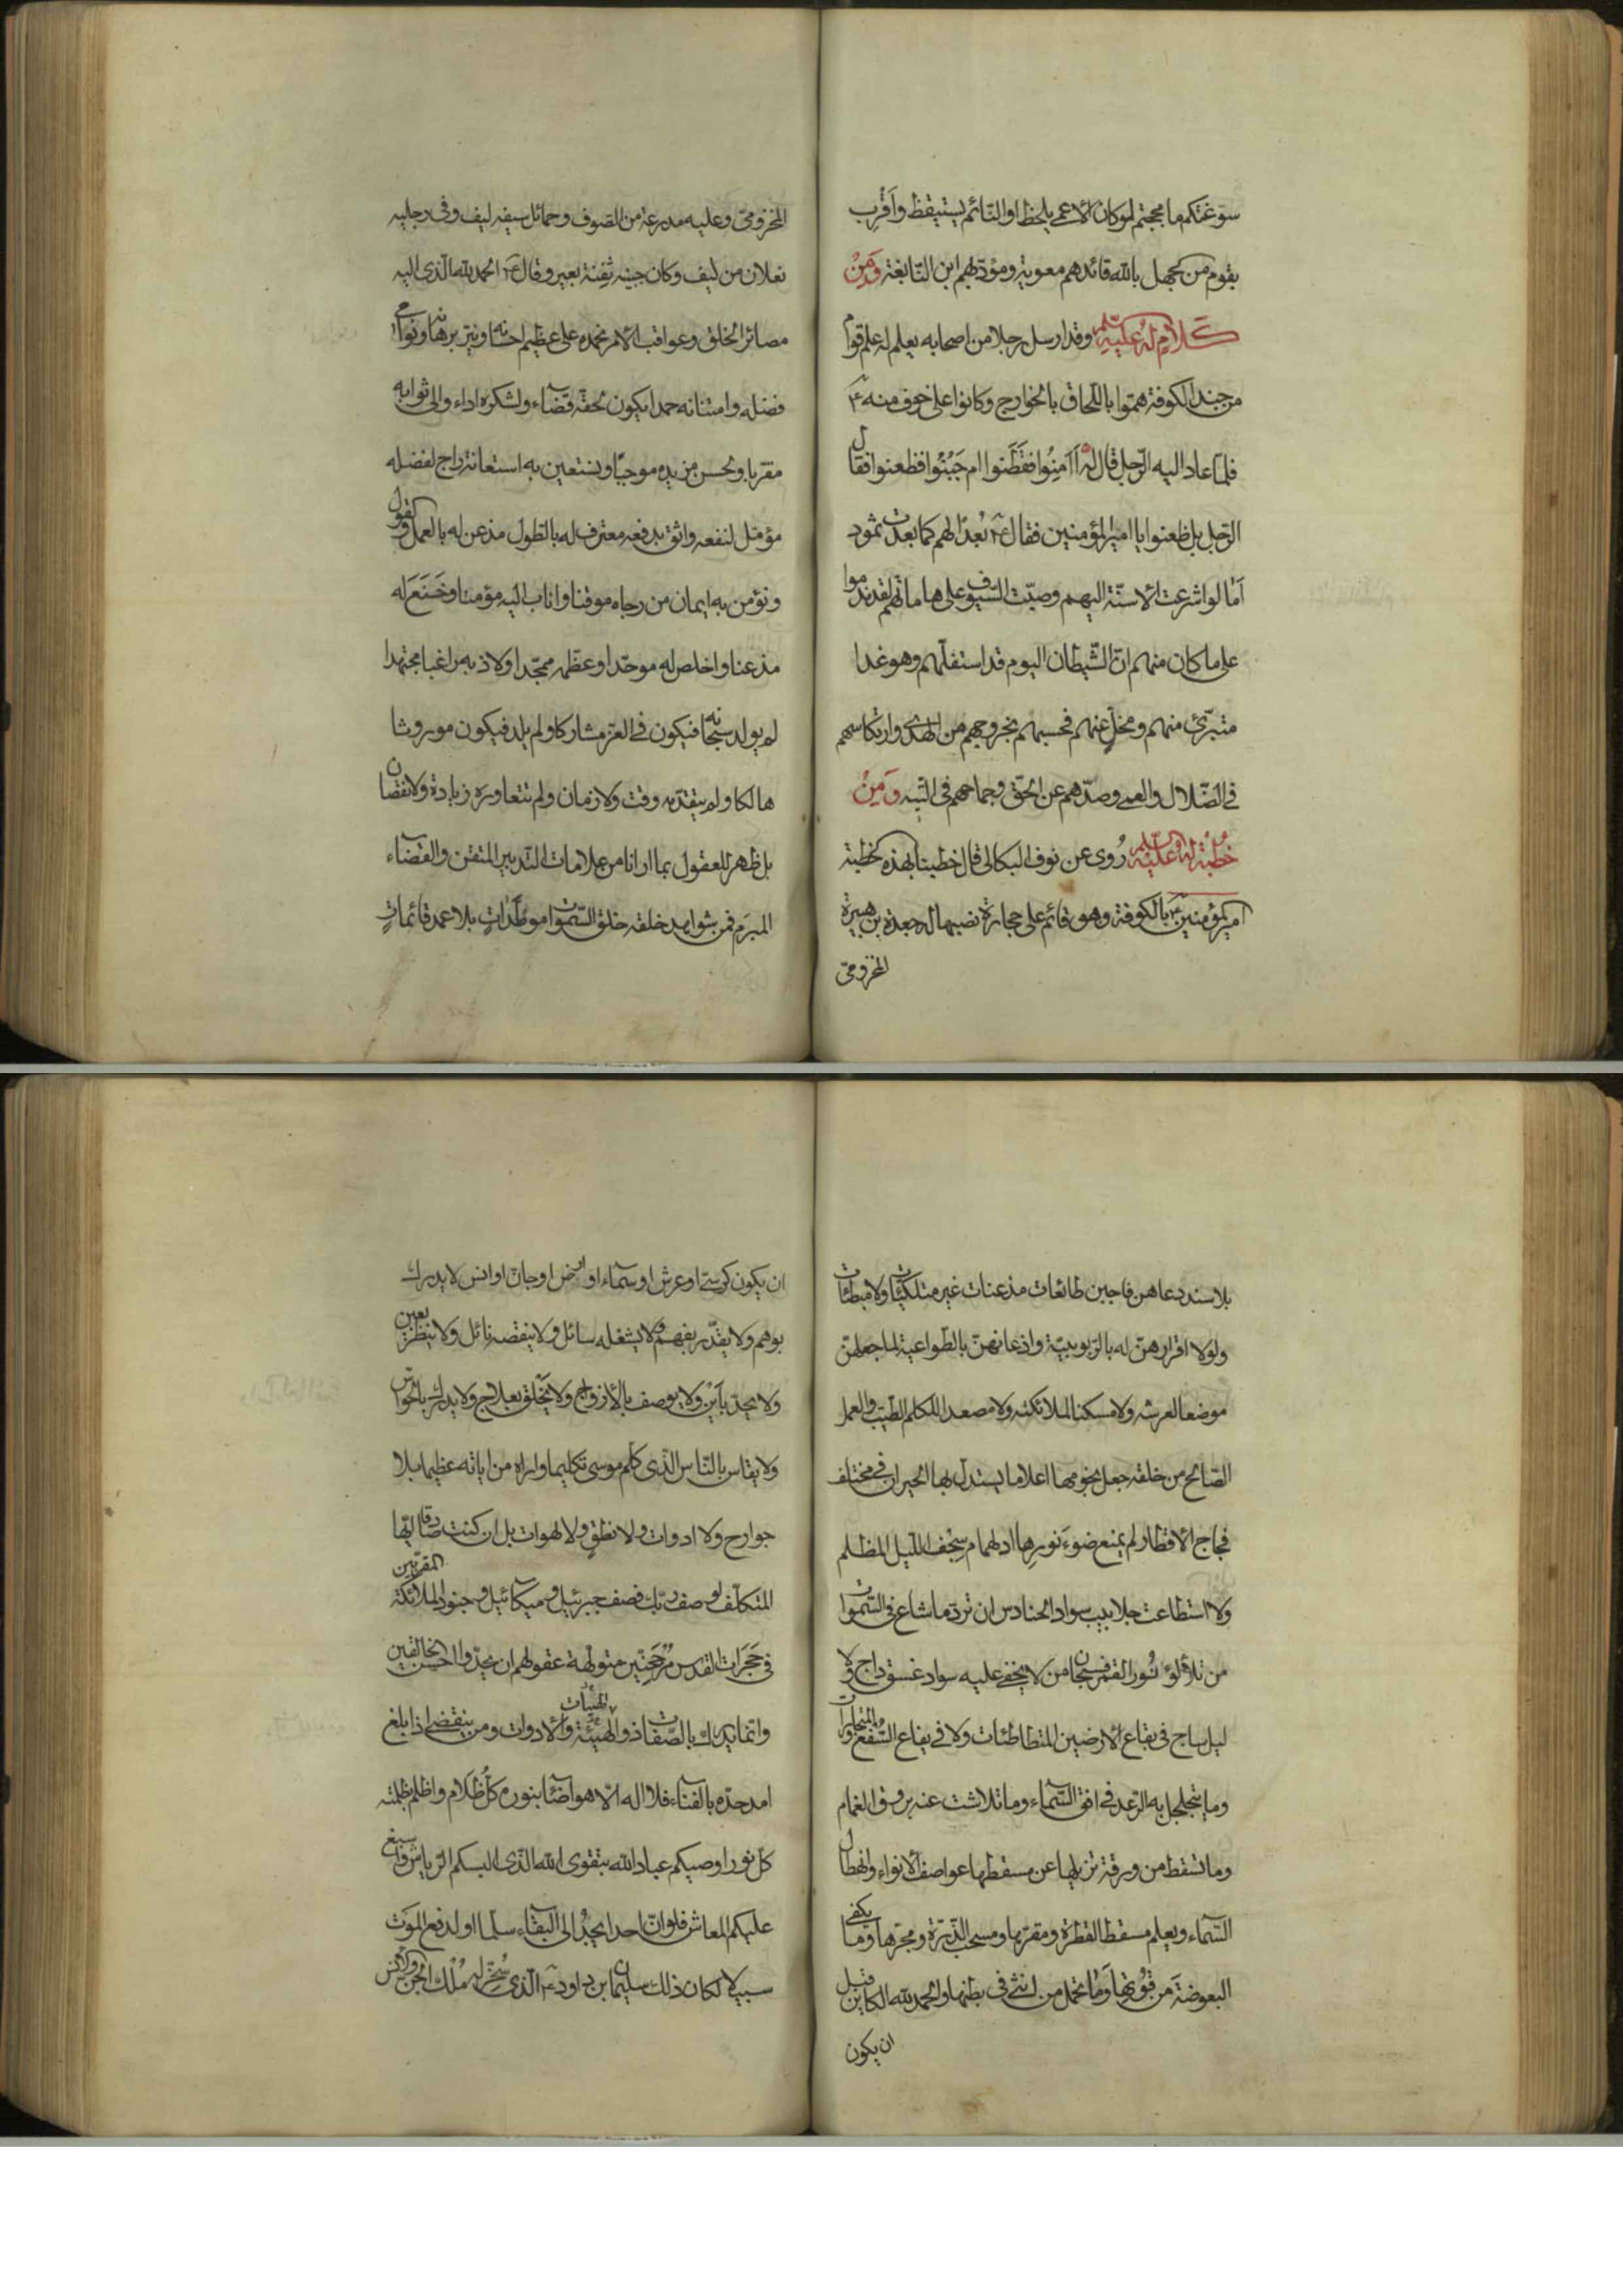 سوّغتكم ما مججتم لو كان الاعمى يلحظ او النّائم يستيقظ وَاَقْرِب
بقوم من الجهل بالله قائدهم معوية ومؤدّبهم ابن النّابغة وَمِنْ
كَلامٍ لَهُ عَلَيْهِ السّلم وقد ارسل رجلا من اصحابه يعلم له علم قوم
من جند الكوفة همّوا باللّحاق بالخوارج وكانوا على خوف منه ع
فلما عاد اليه الرّجل قال لهُ اَاَمِنُوا فقَطَنوا ام جَبُنُوا فظعنوا فقال
الرّجل بل ظعنوا يا امير المؤمنين فقال ع بُعْدًا لهم كما بعدت ثمود
اَمَا لو اشرعت الاسنّة اليهم وصبّت السّيوف على هاماتهم لقد ندموا
على ما كان منهم انّ الشّيطان اليوم قد استفلّهم وهو غدا
متبرّئ منهم ومخلٍّ عنهم فحسبهم بخروجهم من الهدى وارتكاسهم
فى الضّلال والعمى وصدّهم عن الحقّ وجماحهم فى التّيه وَمِنْ
خُطْبَةٍ لَهُ عَلَيْهِ السّلم رُوى عن نوف البكالى قال خطبنا بهذه الخطبة
امير المؤمنين ع بالكوفة وهو قائم على حجارة نصبها له جعدة بن هبيرة
المخزومىّ
المخزومىّ وعليه مدرعة من الصّوف وحمائل سيفه ليف وفى رجليه
نعلان من ليف وكان جبينه ثفِنة بعير وقال ع الحمد لله الّذى اليه
مصائر الخلق وعواقب الامر نحمده على عظيم احسانه ونيّر برهانه ونوامى
فضله وامتنانه حمدا يكون لحقّه قضآء ولشكره اداء والى ثوابه
مقرّبا ولحسن مزيده موجبًا ونستعين به استعانة راج لفضله
مؤمّل لنفعه واثق بدفعه معترف له بالطّول مذعن له بالعمل والقول
ونؤمن به ايمان من رجاه موقنا واناب اليه مؤمنا وخَنَعَ له
مذعنا واخلص له موحّدا وعظّمه ممجّدا ولاذ به راغبا مجتهدا
لم يولد سبحانه فيكون فى العزّ مشاركا ولم يلد فيكون موروثا
هالكا ولم يتقدّمه وقت ولا زمان ولم تتعاوره زيادة ولا نقصان
بل ظهر للعقول بما ارانا من علامات التّدبير المتقن والقضآء
المبرَم فمن شواهد خلقه خلق السّموات موطّداتٍ بلا عمد قائماتٍ
بلا سند دعاهن فاجبن طائعات مذعنات غير متلكّئات ولا مبطئات
ولولا اقرارهنّ له بالرّبوبيّة واذعانهنّ بالطّواعية لما جعلهنّ
موضعا لعرشه ولا مسكنا لملائكته ولا مصعدا للكلم الطّيّب والعمل
الصّالح من خلقه جعل نجومها اعلاما يستدلّ بها الحيران فى مختلف
فجاج الاقطار لم يمنع ضوءَ نورِها ادلهمام سِجْف اللّيل المظلم
ولا استطاعت جلابيب سواد الحنادس ان تردّ ما شاع فى السّموات
من تلألؤ نُور القمر فسبحان من لا يخفى عليه سواد غسق داج ولا
ليل ساج فى بقاع الارضين المتطاطئات ولا فى يفاع السُّفع المتجاورات
وما يتجلجل به الرّعد فى افق السّمآء وما تلاشت عنه بروق الغمام
وما تسقط من ورقة تزيلها عن مسقطها عواصف الانواء وانهطال
السّمآء ويعلم مسقط القطرة ومقرّها ومسحب الذّرّة ومجرّها وما يكفى
البعوضةَ من قُوْتها وَمَا تحمل من انثى فى بطنها والحمد لله الكاين قبل
ان يكون
ان يكون كرسىّ او عرش او سمآء او ارض او جانّ او انس لا يدرك
بوهم ولا يقدّر بفهم ولا يشغله سائل ولا ينقصه نائل ولا ينظر بعين
ولا يحدّ بأَيْن ولا يوصف بالأزواج ولا يَخْلق بعلاج ولا يدرك بالحواسّ
ولا يقاس بالنّاس الّذى كلّم موسى تكليما واراه من اياته عظيما بلا
جوارح ولا ادوات ولا نطقٍ ولا لهوات بل ان كنت صادقا ايّها
المتكلّف لوصف ربّك فصف جبرئيل وميكآئيل وجنود الملائكة المقرّبين
فى حَجَرَات القدس مُرْجَحِنّين متولّهة عقولهم ان يحدّوا احسن الخالقين
وانّما يدرك بالصّفات ذو الهيئة الهيئات والادوات ومن ينقضى اذا بلغ
امد حدّه بالفنآء فلا اله الّا هو اضآء بنوره كلّ ظَلَام واظلم بظلمته
كلّ نور اوصيكم عباد الله بتقوى الله الّذى البسكم الرّياش واسبغ
عليكم المعاش فلو انّ احدا يجدُ الى البقآء سلّما او لدفع المَوْت
سبيلا لكان ذلك سليمان بن داود ع الّذى سُخّر له مُلْك الجنّ والانس